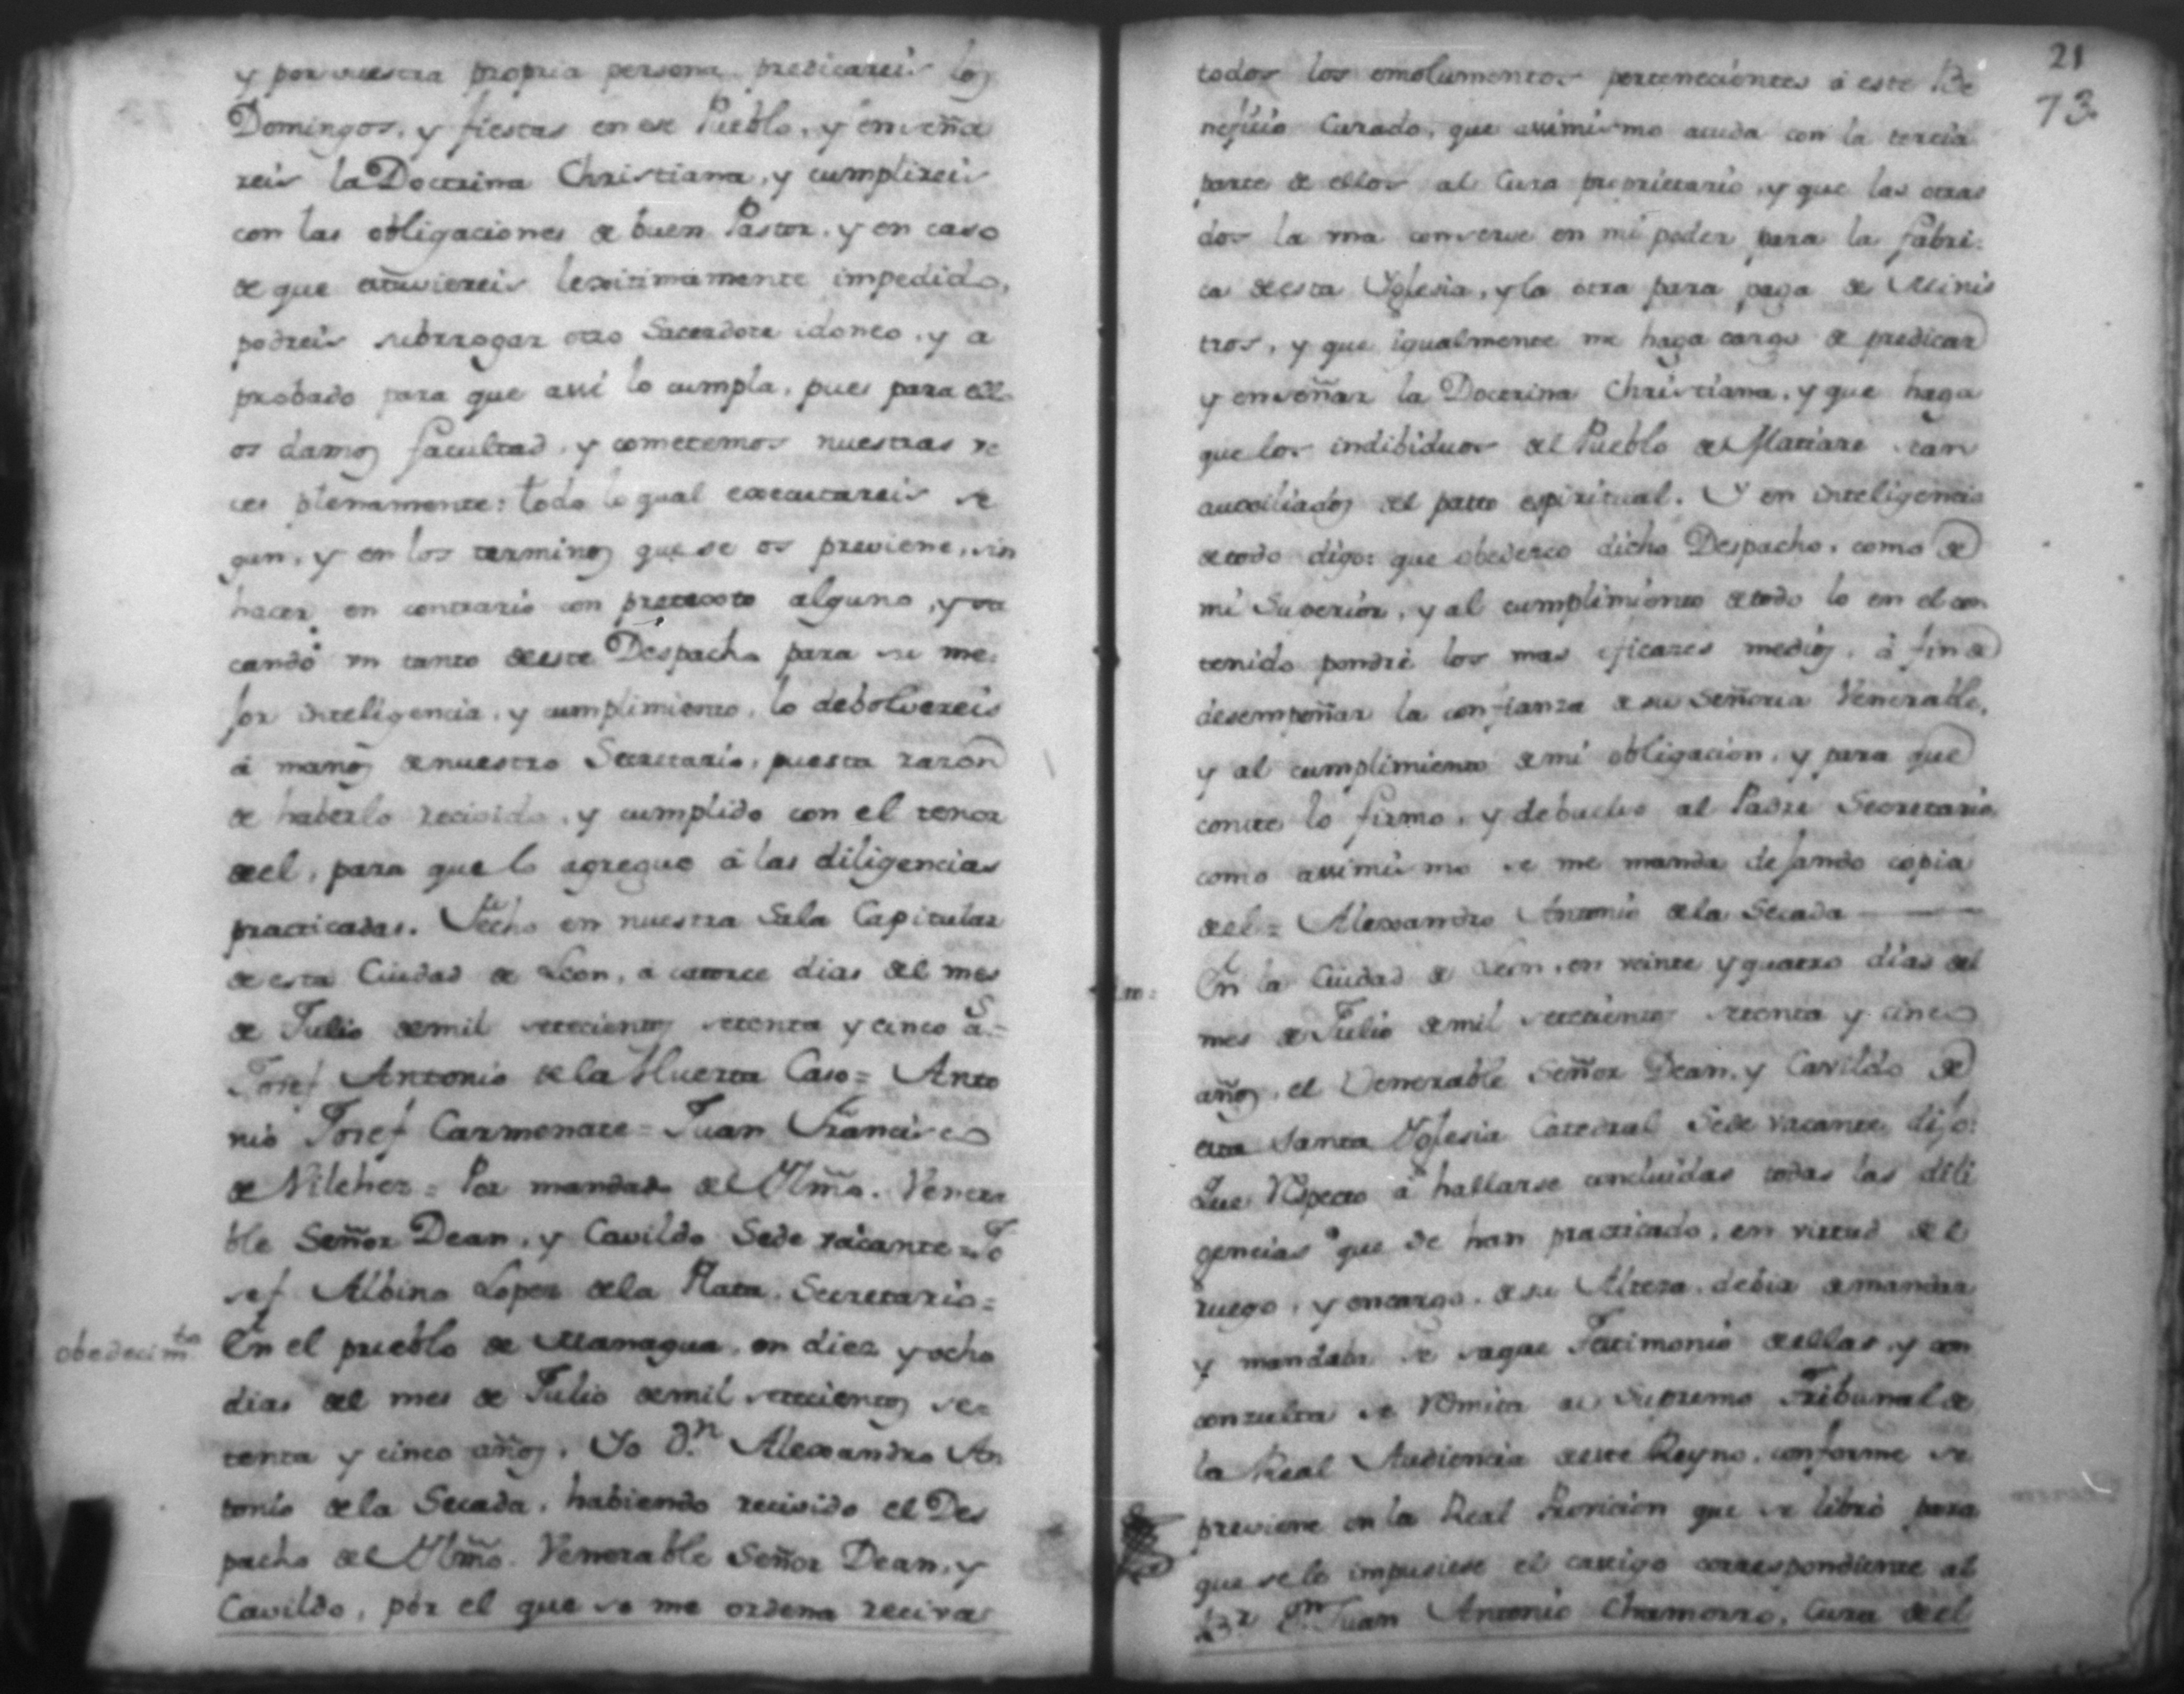 y por vuestra propria persona predicareis los
Domingos, y fiestas en ese Pueblo, y enseña
reis la Doctrina Christiana, y cumplireis
con las obligaciones de buen Pastor, y en caso
de que estuviereis lexitimamente impedido,
podreis subrrogar otro Sacerdote idoneo, y a
probado para que assi lo cumpla, pues para ello
os damos facultad, y cometemos nuestras ve
ces plenamente: todo lo qual executareis se
gun, y en los terminos que se os previene, sin
hacer en contrario con pretexto alguno, y sa
cando un tanto de este Despacho para su me
jor inteligencia, y cumplimiento, lo debolvereis
á manos de nuestro Secretario, puesta razon
de haberlo recivido, y cumplido con el tenor
de el, para que lo agregue á las diligencias
practicadas. Fecho en nuestra Sala Capitular
de esta Ciudad de Leon, á catorce dias del mes
de Julio de mil setecientos setenta y cinco a.s =
Josef Antonio de la Huerta Caso = Anto
nio Josef Carmenate = Juan Francisco
de Vilchez = Por mandado del Yllmō. Venera
ble Señor Dean, y Cavildo Sede vacante = Jo
sef Albino Lopez de la Plata, Secretario =
obedecim.to En el pueblo de Managua, en diez y ocho
dias del mes de Julio de mil setecientos se
tenta y cinco años. Yo D.n Alexandro An
tonio de la Secada, habiendo recivido el Des
pacho del Yllmō. Venerable Señor Dean, y
Cavildo, por el que se me ordena reciva
21
73
todos los emolumentos pertenecientes á este Be
neficio Curado, que assimismo acuda con la tercia
parte de ellos al Cura proprietario, y que las otras
dos la una conserve en mi poder para la fabri
ca de esta Yglesia, y la otra para paga de Minis
tros, y que igualmente me haga cargo de predicar
y enseñar la Doctrina Christiana, y que haga
que los indibiduos del Pueblo de Matiare sean
auxiliados del pasto espiritual. Y en inteligencia
de todo digo: que obedezco dicho Despacho, como de
mi Superior, y al cumplimiento de todo lo en el con
tenido pondré los mas eficazes medios, á fin de
desempeñar la confianza de su Señoria Venerable,
y al cumplimiento de mi obligacion, y para que
conste lo firmo, y debuelvo al Padre Secretario,
como assimismo se me manda dejando copia
de el = Alexandro Antonio de la Secada
En la Ciudad de Leon, en veinte y quatro dias del
mes de Julio de mil setecientos setenta y cinco
años, el Venerable Señor Dean, y Cavildo de
esta Santa Yglesia Catedral Sede vacante, dijo:
Que respecto á hallarse concluidas todas las dili
gencias que se han practicado, en virtud del
ruego, y encargo de su Alteza, debia de mandar
y mandaba se saque Testimonio de ellas, y con
consulta se remita al Supremo Tribunal de
la Real Audiencia de este Reyno, conforme se
previene en la Real Provicion que se libró para
que se le impusiese el castigo correspondiente al
B.r D.n Juan Antonio Chamorro, Cura de el